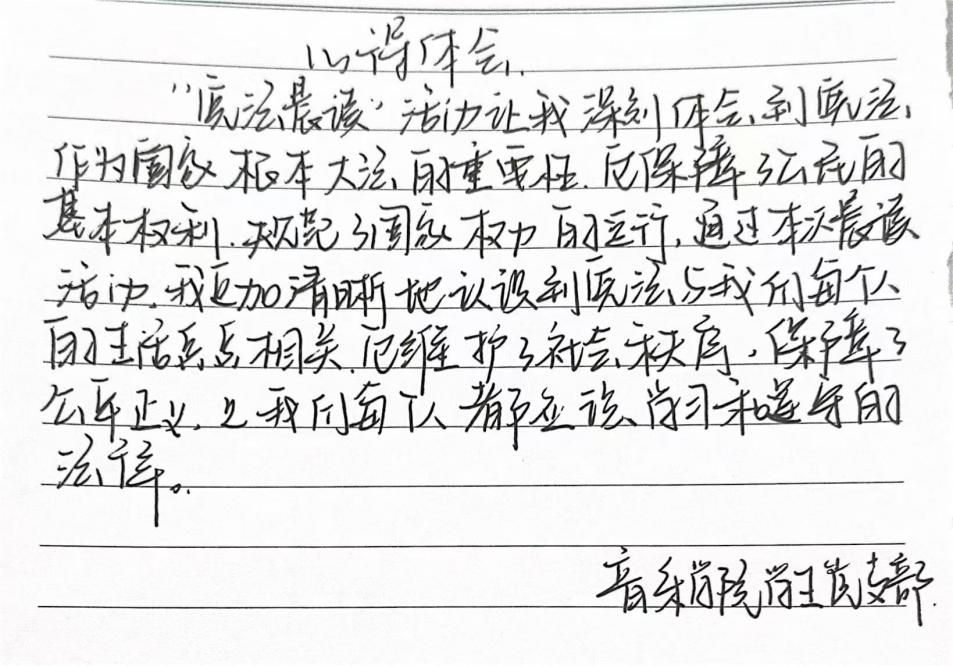 心得体会.
“宪法晨读”活动让我深刻体会到宪法
作为国家根本大法的重要性.它保障了公民的
基本权利.规范了国家权力的运行,通过本次晨读
活动.我更加清晰地认识到宪法与我们每个人
的生活息息相关.它维护了社会秩序,保障了
公平正义.是我们每个人都应该学习和遵守的
法律。
音乐学院学生党支部.